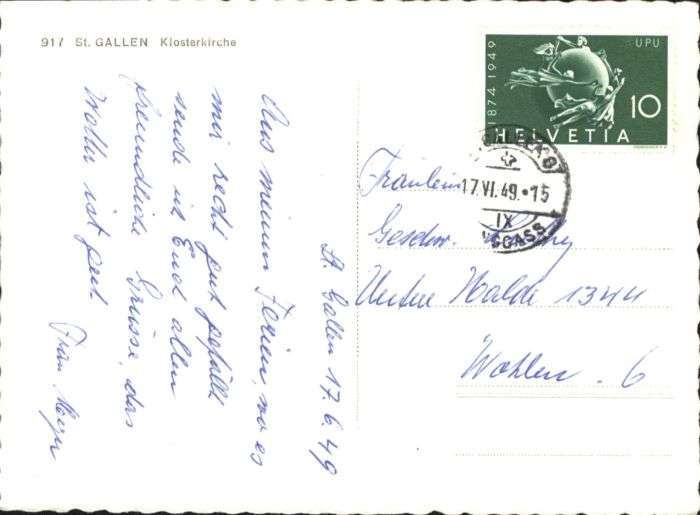 917 St. GALLEN Klosterkirche
1874-1949
UPU
10
HELVETIA
17.VI.49.-15
IX
St. Gallen 17.6.49
Aus meinen Ferien, wo es
mir recht gut gefällt
sende ich Euch allen
freundliche Grüsse, das
Wetter ist gut.
Frau Meyer
Fräulein
Geschw.
Untere Halde 1344
Wohlen. 6